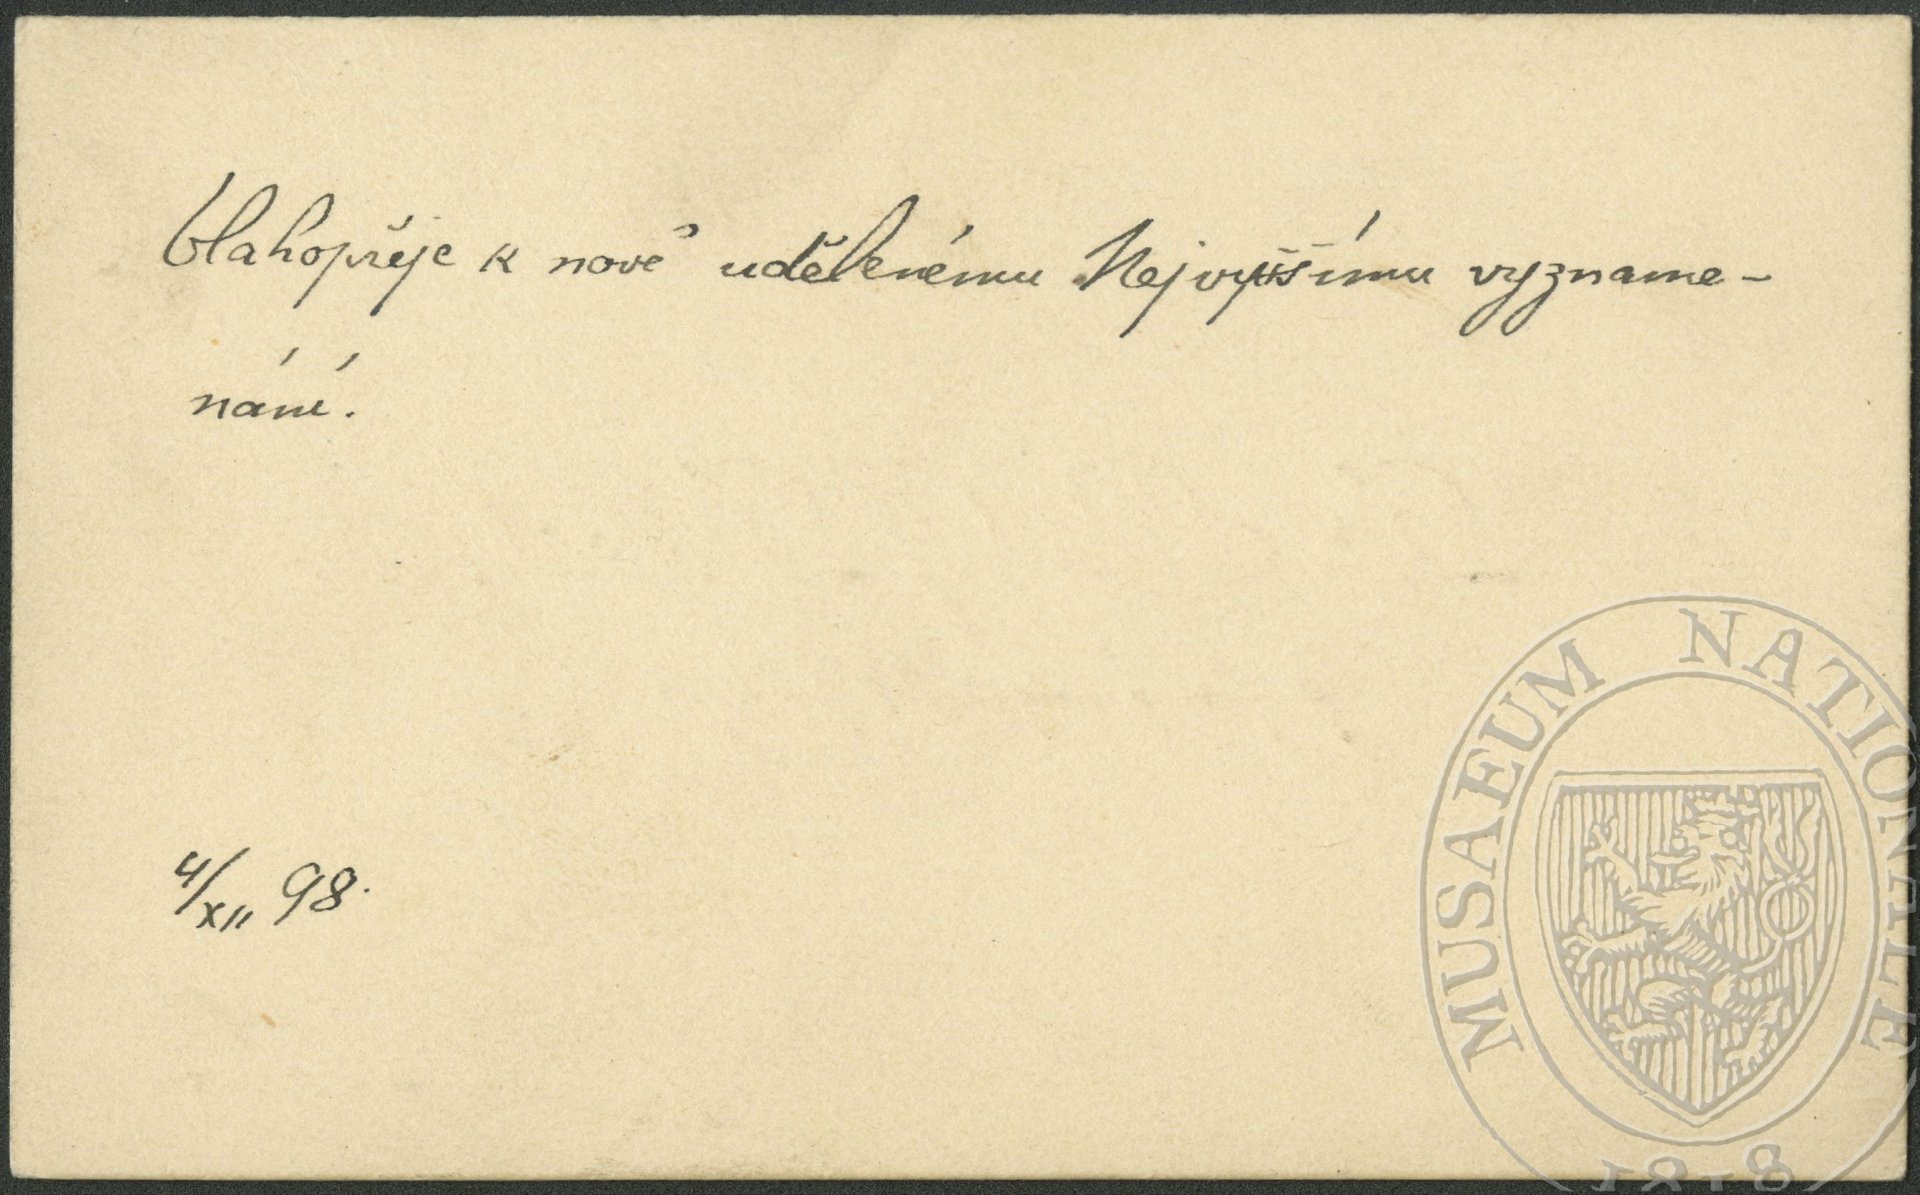 blahopřeje k nově udělenému Nejvyššímu vyzname-
nání.
4/XII 98.
MUSAEUM NATIONALE
1818